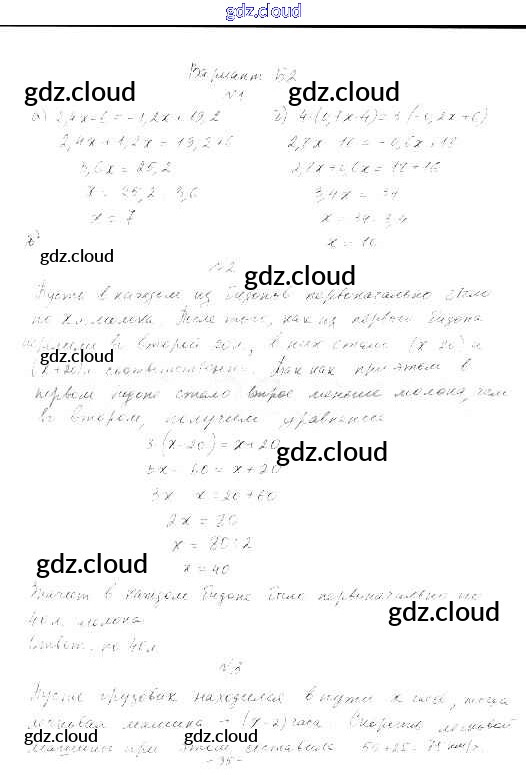 gdz.cloud
Вариант Б2
gdz.cloud gdz.cloud
№1
а) 2,4x-6 = -1,2x+19,2 б) 4·(0,7x-4)=3·(-0,2x+6)
2,4x+1,2x = 19,2+6 2,8x-16 = -0,6x+18
3,6x = 25,2 2,8x+0,6x = 18+16
x = 25,2 : 3,6 3,4x = 34
x = 7 x = 34 : 3,4
x = 10
gdz.cloud
№2 gdz.cloud
Пусть в каждом из бидонов первоначально было
по x л молока. После того, как из первого бидона
перелили во второй 20л, в них стало (x-20) и
(x+20)л соответственно. Так как при этом в
первом бидоне стало втрое меньше молока, чем
во втором, получаем уравнение
3·(x-20) = x+20
gdz.cloud
3x-60 = x+20
3x-x = 20+60
2x = 80
x = 80:2
gdz.cloud
x = 40
Значит в каждом бидоне было первоначально по
gdz.cloud
40л молока.
Ответ: по 40л.
№3
Пусть грузовик находился в пути x часов, тогда
легковая машина - (x-2) часа. Скорость легковой
gdz.cloud gdz.cloud gdz.cloud
машины при этом составила 50+25=75 км/ч.
-35-